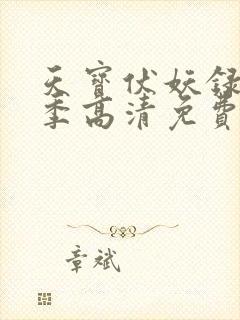 天寶伏妖録
季高清免費
章斌